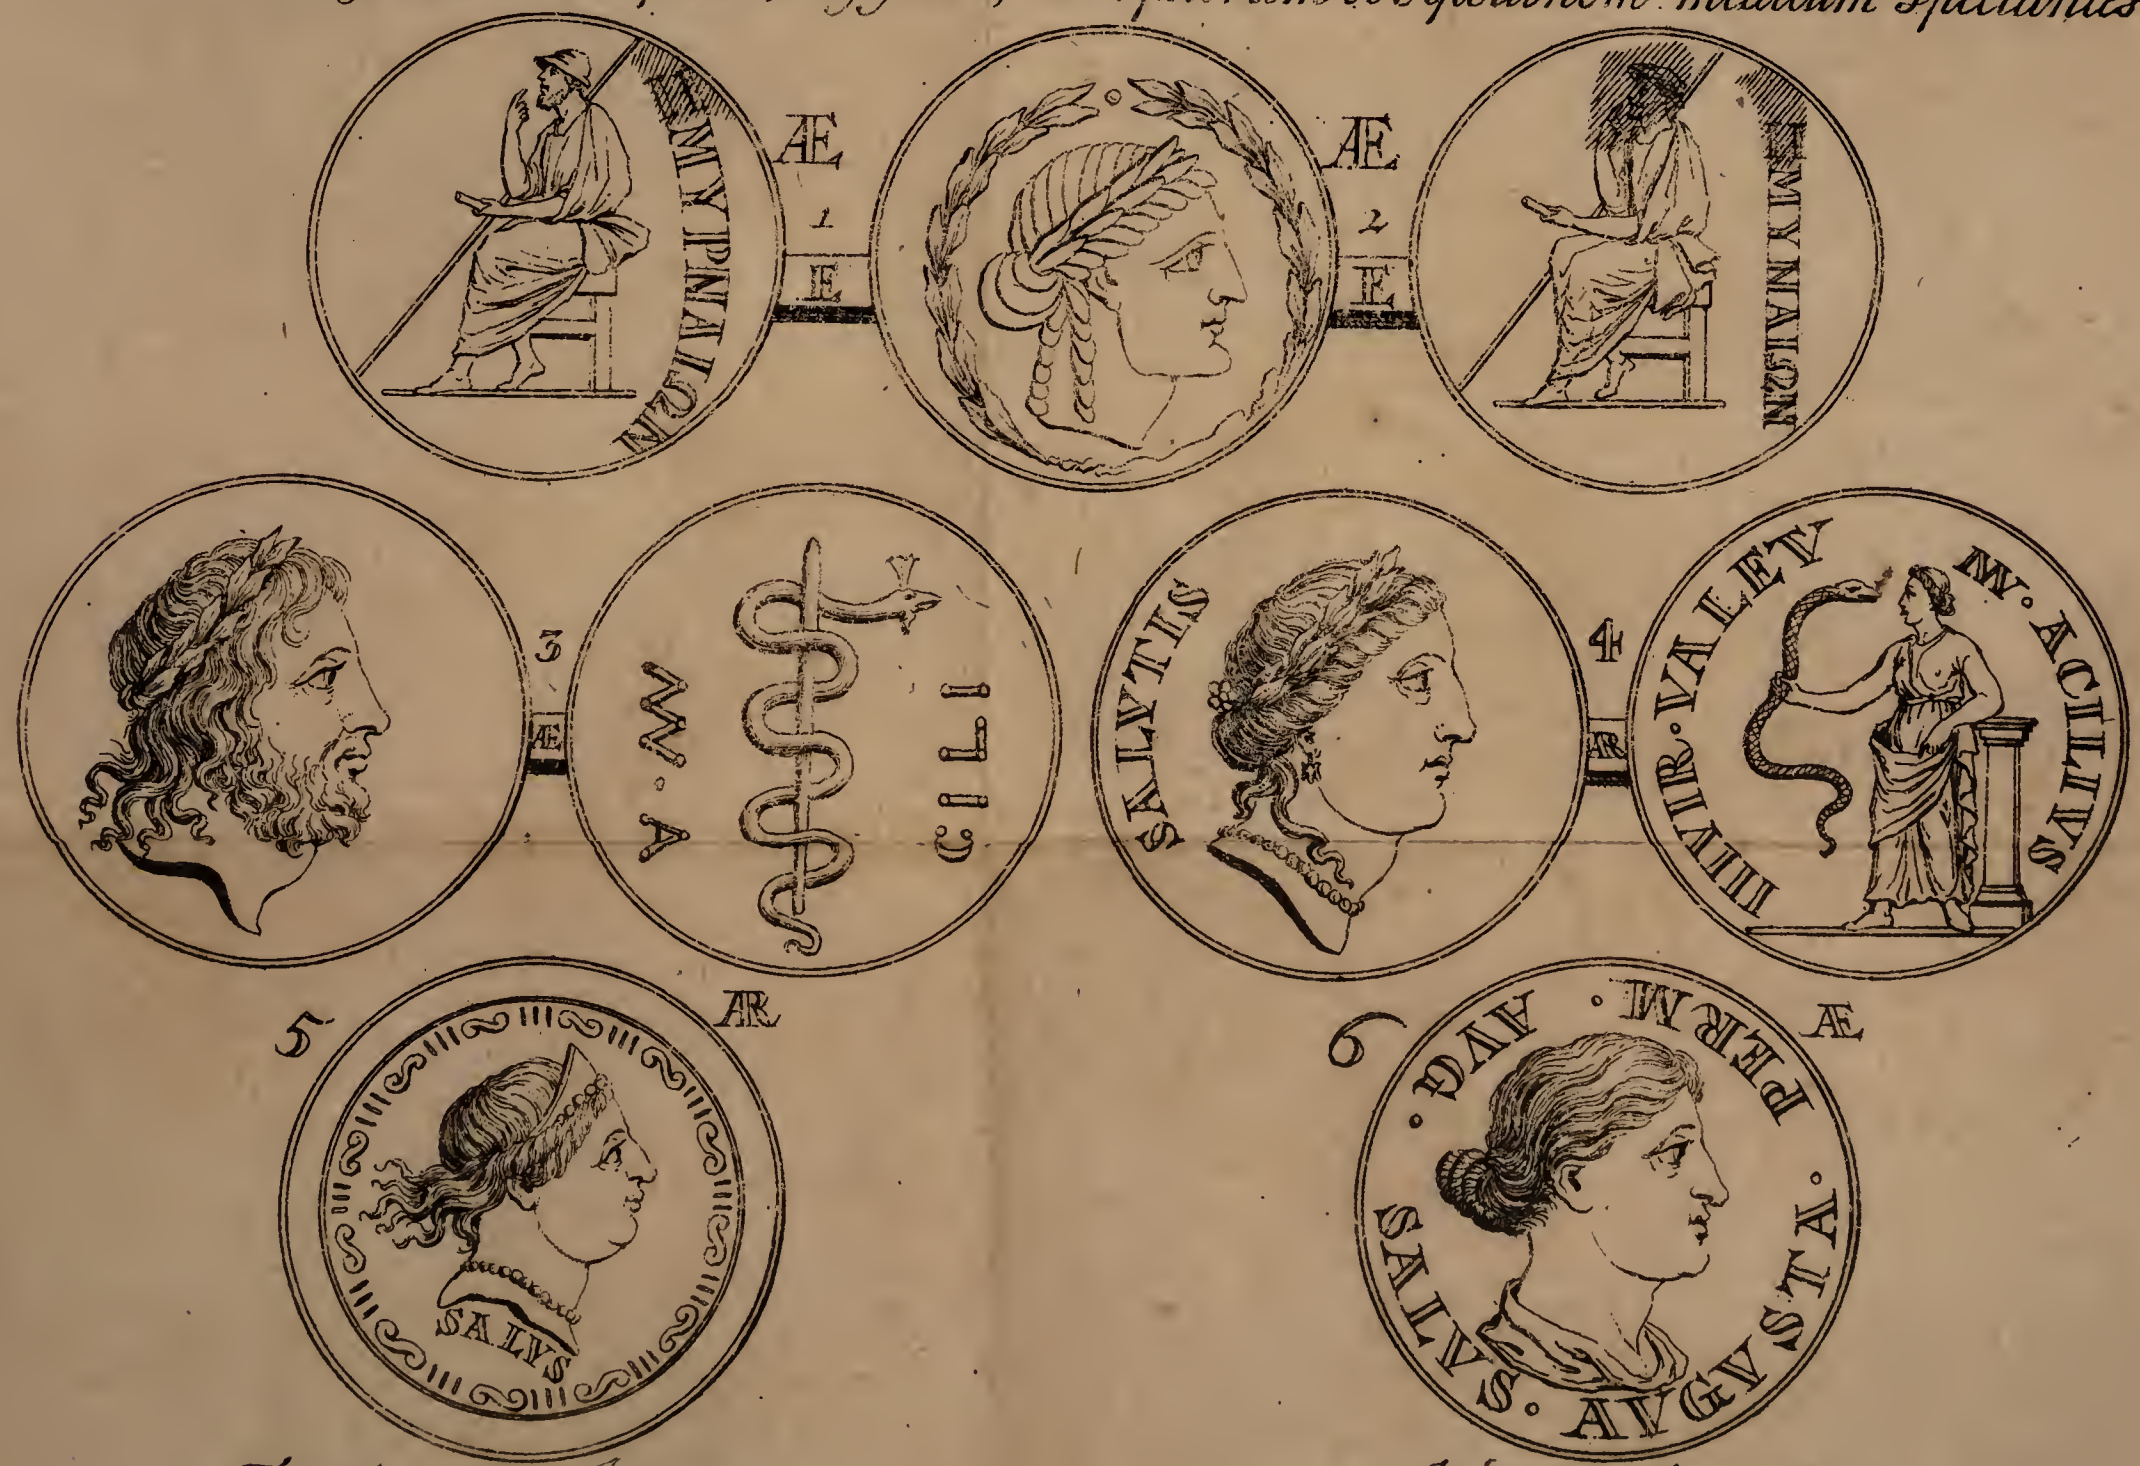 spectantes
ΜΥΡΝΑΙΩΝ
Æ
1
Æ
Æ
2
Æ
ΜΥΝΑΙΩΝ
3
Æ
M · A
CILI
SALVTIS
4
AR
IIIVIR · VALETV
MN · ACILIVS
5
AR
SALVS
6
Æ
SALVS · AVGVSTA · PERM · AVG ·